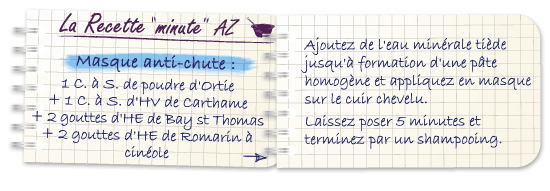 La Recette "minute" AZ
Masque anti-chute :
1 C. à S. de poudre d'Ortie
+ 1 C. à S. d'HV de Carthame
+ 2 gouttes d'HE de Bay st Thomas
+ 2 gouttes d'HE de Romarin à
cinéole
Ajoutez de l'eau minérale tiède
jusqu'à formation d'une pâte
homogène et appliquez en masque
sur le cuir chevelu.
Laissez poser 5 minutes et
terminez par un shampooing.